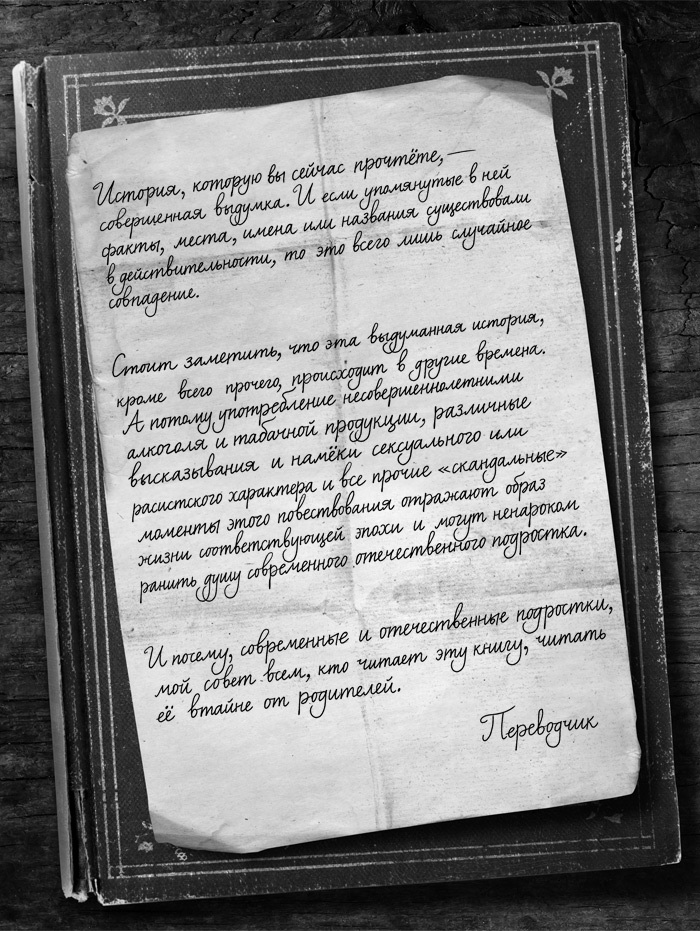 История, которую вы сейчас прочтёте, —
совершенная выдумка. И если упомянутые в ней
факты, места, имена или названия существовали
в действительности, то это всего лишь случайное
совпадение.
Стоит заметить, что эта выдуманная история,
кроме всего прочего, происходит в другие времена.
А потому употребление несовершеннолетними
алкоголя и табачной продукции, различные
высказывания и намёки сексуального или
расистского характера и все прочие «скандальные»
моменты этого повествования отражают образ
жизни соответствующей эпохи и могут ненароком
ранить душу современного отечественного подростка.
И посему, современные и отечественные подростки,
мой совет всем, кто читает эту книгу, читать
её втайне от родителей.
Переводчик